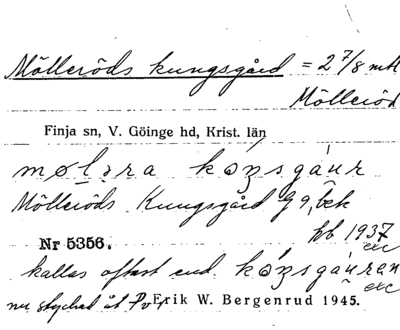 Mölleröds kungsgård = 2 7/8 mtl
Mölleröd
Finja sn, V. Göinge hd, Krist. län
møl̥ɘra kóŋsgáur
Mölleröds Kungsgård J 9, bek
hb 1937
exc
Nr 5356.
kallas oftast end. kóŋsgáuran
exc
nu styckad åt
Erik W. Bergenrud 1945.